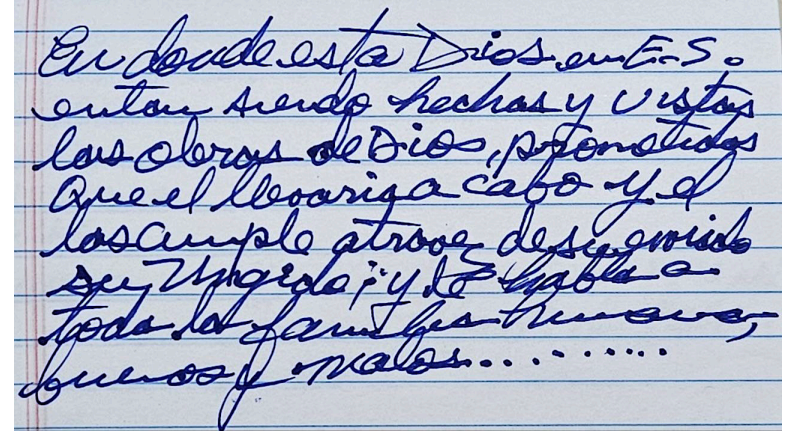 En donde esta Dios en E.S.
estan siendo hechas y vistas
las obras de Dios, prometidas
Que el llevaria a cabo y el
las cumple atravez de su enviado
su Ungido; y le habla a
toda la familia humana,
buenos y malos..........